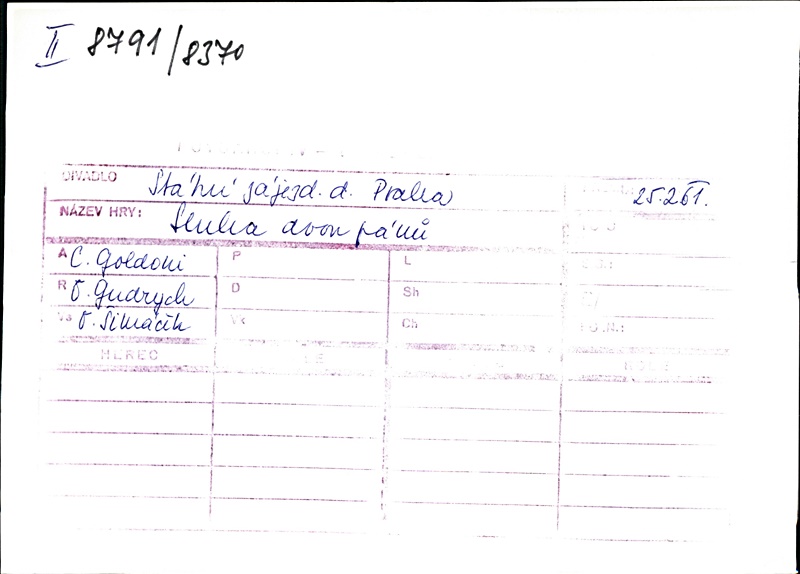 II 8791/8370
DIVADLO Státní zájezd. d. Praha 25.2.61.
NÁZEV HRY: Sluha dvou pánů
A C. Goldoni P L
R O. Gudrych D Sh
Vs V. Šimáčik Vk Ch
HEREC